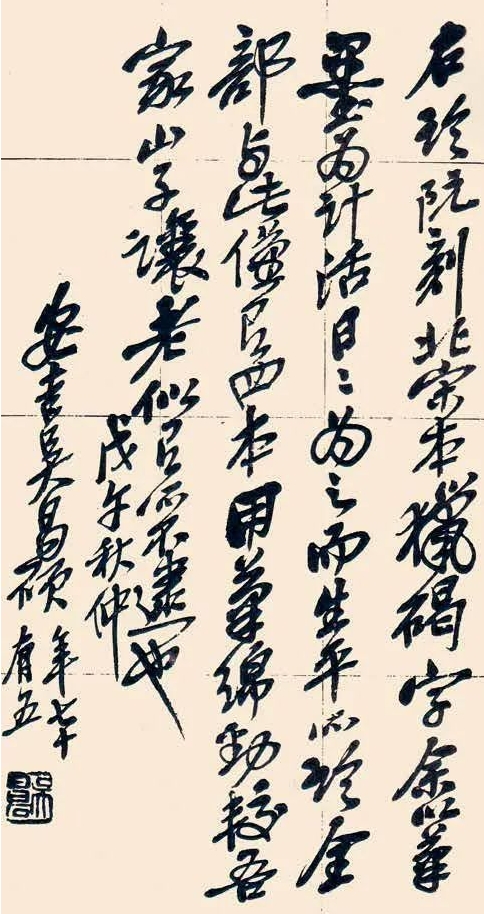 右臨阮刻北宋本獵碣字余以筆
墨為計活日〻為之而生平所臨全
部與此僅四本用筆綿勁較吾
家山子讓老似所不逮也
戊午秋仲
安吉吳昌碩
年七十
有五